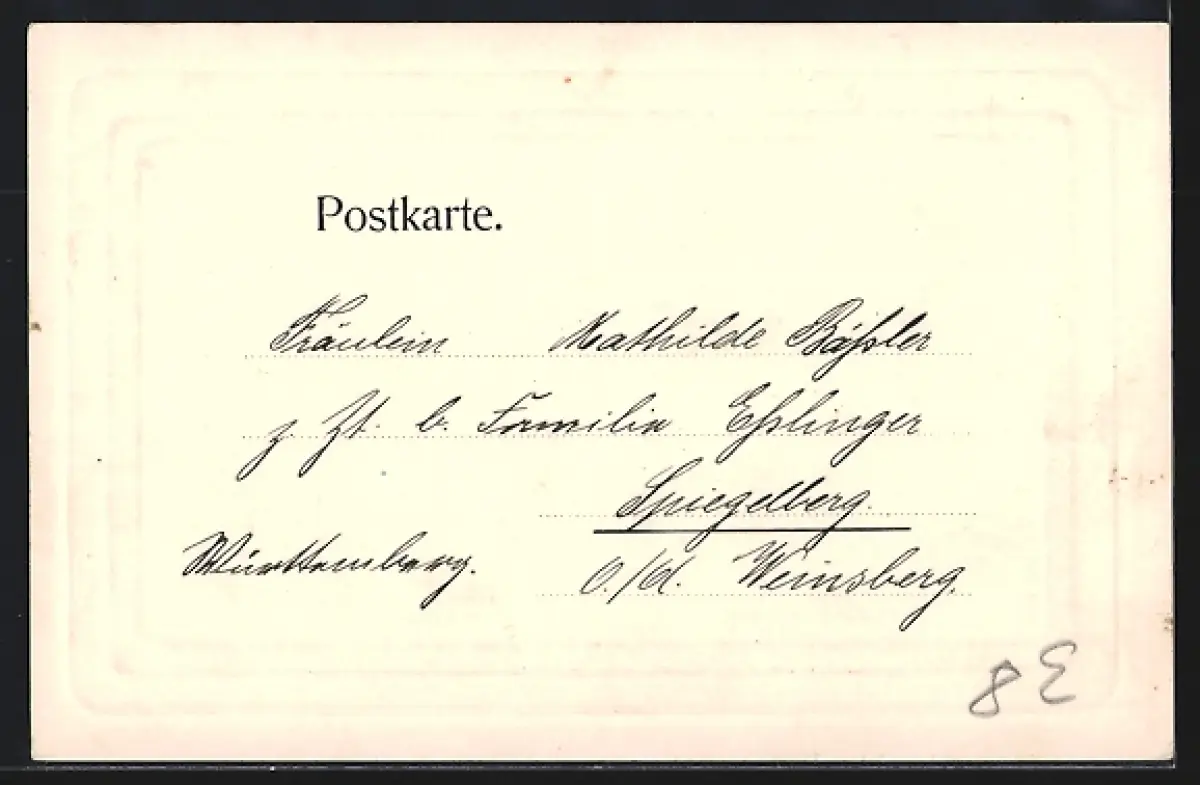 Postkarte.
Fräulein Mathilde Bäßler
z Zt. b. Familie Eßlinger
Spiegelberg.
Württemberg. O./A. Weinsberg.
8 E